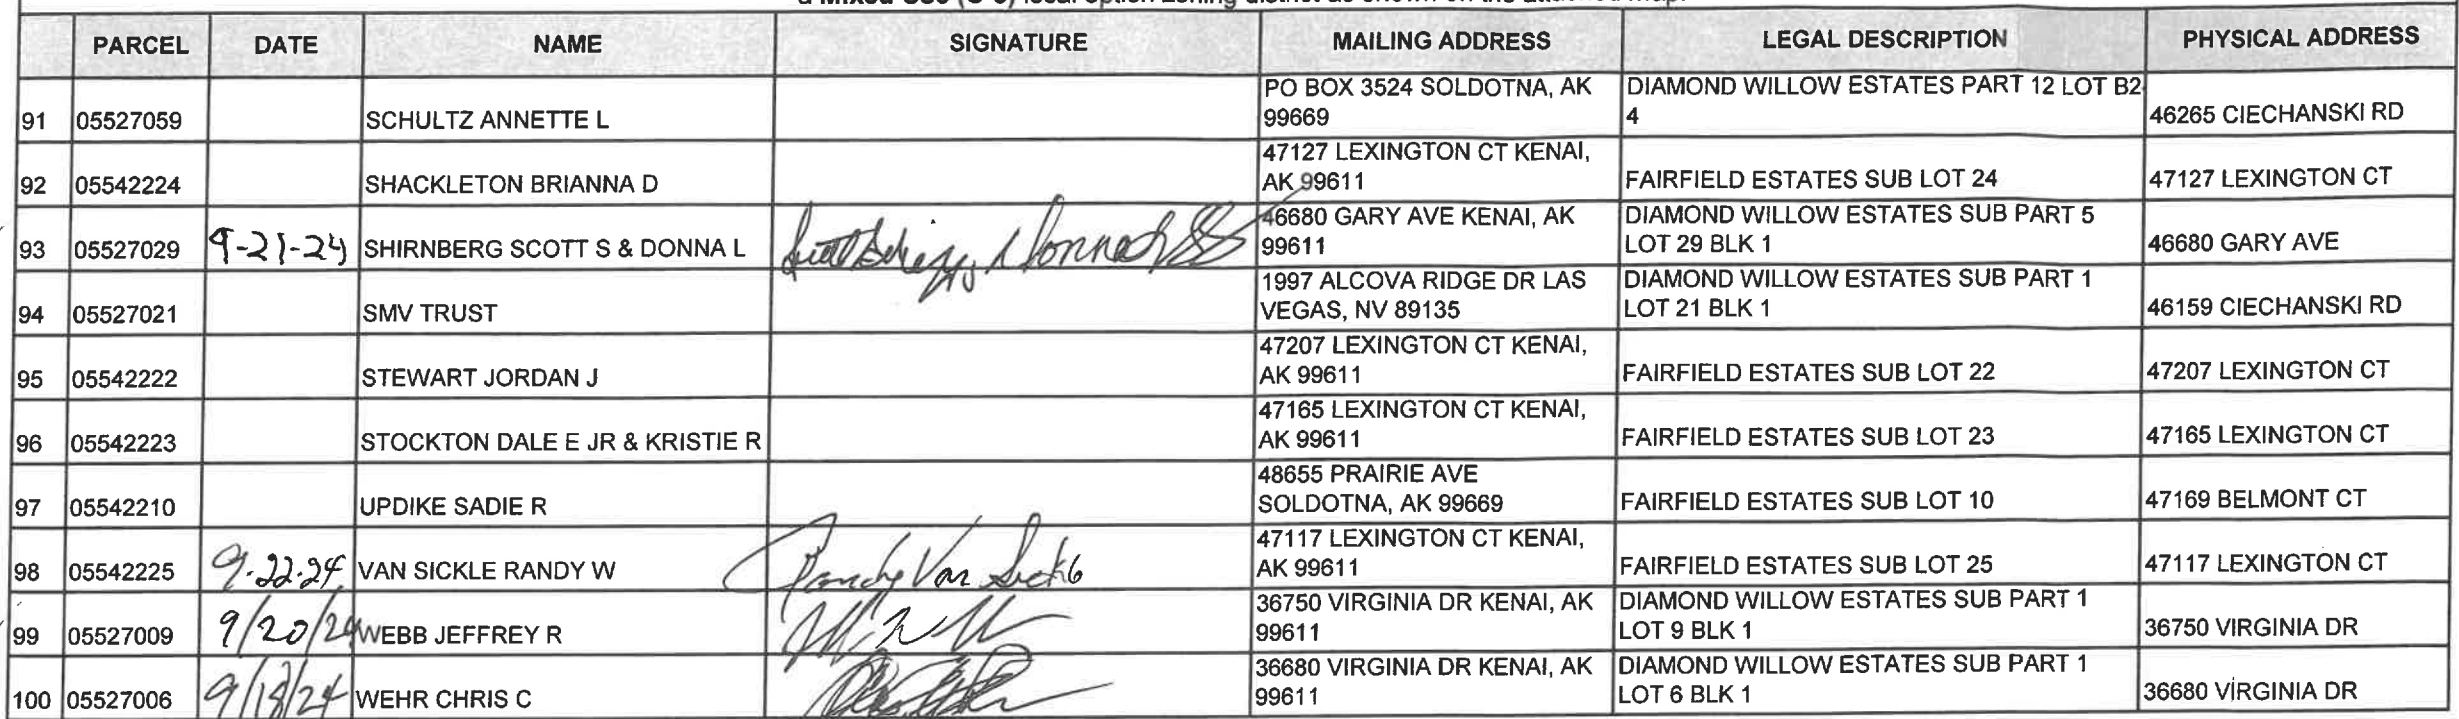 a Mixed Use (C-3) local option zoning district as shown on the attached map.
PARCEL DATE NAME SIGNATURE MAILING ADDRESS LEGAL DESCRIPTION PHYSICAL ADDRESS
91 05527059 SCHULTZ ANNETTE L PO BOX 3524 SOLDOTNA, AK 99669 DIAMOND WILLOW ESTATES PART 12 LOT B2 4 46265 CIECHANSKI RD
92 05542224 SHACKLETON BRIANNA D 47127 LEXINGTON CT KENAI, AK 99611 FAIRFIELD ESTATES SUB LOT 24 47127 LEXINGTON CT
93 05527029 9-21-24 SHIRNBERG SCOTT S & DONNA L 46680 GARY AVE KENAI, AK 99611 DIAMOND WILLOW ESTATES SUB PART 5 LOT 29 BLK 1 46680 GARY AVE
94 05527021 SMV TRUST 1997 ALCOVA RIDGE DR LAS VEGAS, NV 89135 DIAMOND WILLOW ESTATES SUB PART 1 LOT 21 BLK 1 46159 CIECHANSKI RD
95 05542222 STEWART JORDAN J 47207 LEXINGTON CT KENAI, AK 99611 FAIRFIELD ESTATES SUB LOT 22 47207 LEXINGTON CT
96 05542223 STOCKTON DALE E JR & KRISTIE R 47165 LEXINGTON CT KENAI, AK 99611 FAIRFIELD ESTATES SUB LOT 23 47165 LEXINGTON CT
97 05542210 UPDIKE SADIE R 48655 PRAIRIE AVE SOLDOTNA, AK 99669 FAIRFIELD ESTATES SUB LOT 10 47169 BELMONT CT
98 05542225 9-22-24 VAN SICKLE RANDY W Randy Van Sickle 47117 LEXINGTON CT KENAI, AK 99611 FAIRFIELD ESTATES SUB LOT 25 47117 LEXINGTON CT
99 05527009 9/20/24 WEBB JEFFREY R 36750 VIRGINIA DR KENAI, AK 99611 DIAMOND WILLOW ESTATES SUB PART 1 LOT 9 BLK 1 36750 VIRGINIA DR
100 05527006 9/18/24 WEHR CHRIS C 36680 VIRGINIA DR KENAI, AK 99611 DIAMOND WILLOW ESTATES SUB PART 1 LOT 6 BLK 1 36680 VIRGINIA DR